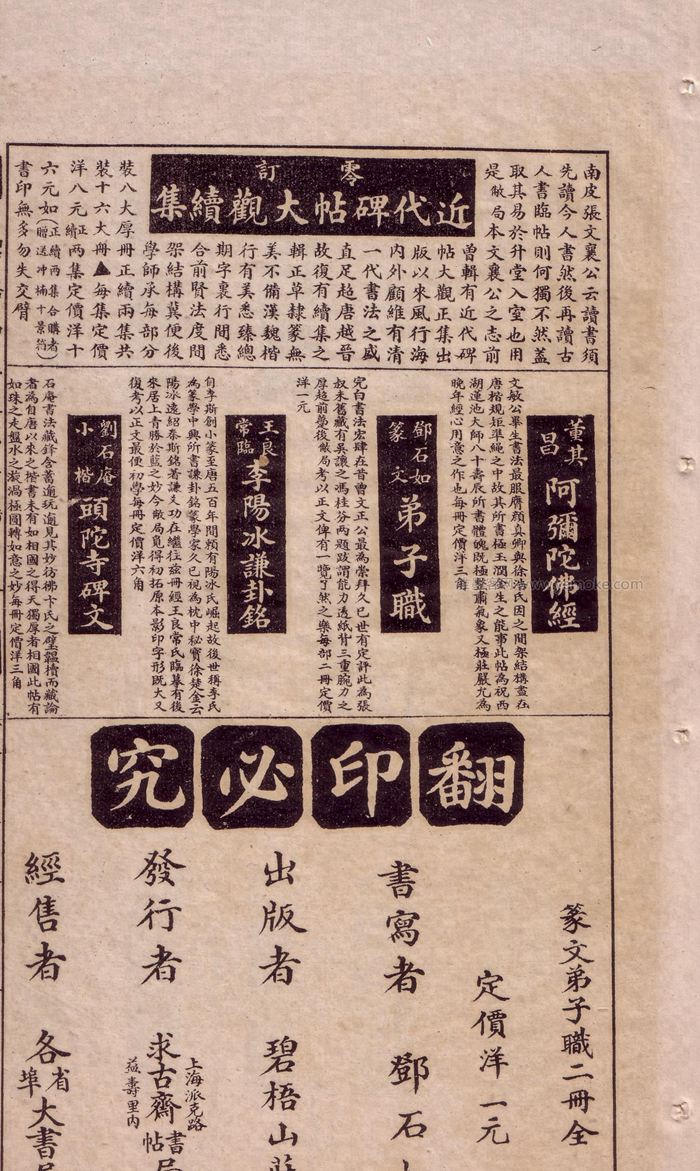 南皮張文襄公云讀書須
先讀今人書然後再讀古
人書臨帖則何獨不然蓋
取其易於升堂入室也用
是敝局本文襄公之志前
零訂
近代碑帖大觀續集
曾輯有近代碑
帖大觀正集出
版以來風行海
內外顧維有清
一代書法之盛
直足趨唐越晉
故復有續集之
輯正草隸篆無
美不備漢魏楷
行有美悉臻總
期字裏行間悉
合前賢法度間
架結構冀便後
學師承每部分
裝八大厚冊正續兩集共
裝十六大冊▲每集定價
洋八元正續兩集定價洋十
六元如(正續兩集合購者贈送沖楠十景箔)
書印無多勿失交臂
董其昌
阿彌陀佛經
文敏公畢生書法最服膺顏真卿與徐浩氏因之間架結構盡在
唐楷規矩準繩之中故其所書極玉潤金生之能事此帖為祝西
湖蓮池大師八十壽辰所書體媲既極整肅氣象又極莊嚴尤為
晚年經心用意之作也每冊定價洋三角
鄧石如篆文
弟子職
完白書法宏肆在昔曾文正公最為崇拜久已世有定評此為張
叔未舊藏有吳讓之馮桂芬兩題跋謂能力透紙背三重腕力之
厚超前軼後敝局考以正文俾有一覽了然之樂每部二冊定價
洋一元
王良常臨
李陽冰謙卦銘
自李斯創小篆至唐五百年間賴有陽冰氏崛起故後世稱李氏
為篆學中興所書謙卦銘篆學家久已視為枕中秘寶徐楚金云
陽冰遠紹秦斯銘著謙爻功在繼往茲冊經王良常氏臨摹有後
來居上青勝於藍之妙今敝局覓得初拓原本影印字形既大又
復考以正文最便初學每冊定價洋六角
劉石庵小楷
頭陀寺碑文
石庵書法藏鋒含蓄遒玩遒見其妙彷彿卞氏之璧韞櫝而藏論
者為自唐以來之楷書未有如相國之得天獨厚者相國此帖有
如珠之走盤水之漩渦極圓轉如意之妙每冊定價洋三角
翻印必究
篆文弟子職二冊全
定價洋一元
書寫者 鄧石
出版者 碧梧山
發行者 求古齋書帖局
上海派克路益壽里內
經售者 各省埠大書局